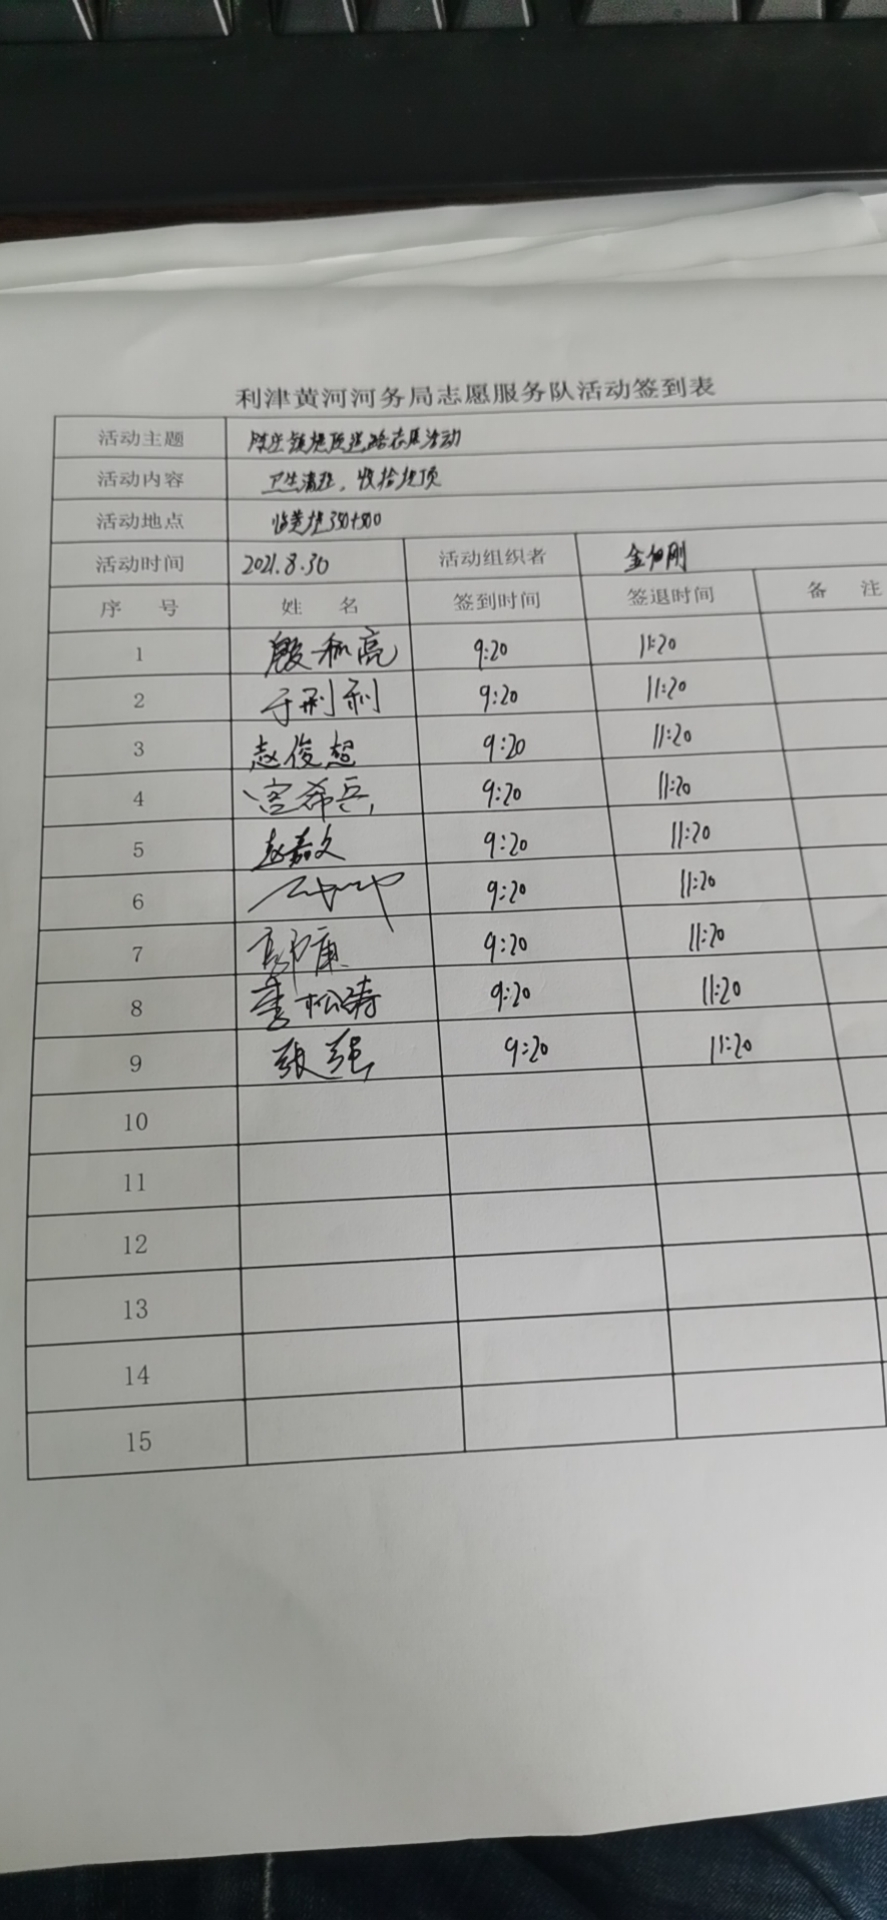 利津黄河河务局志愿服务队活动签到表
活动主题 陈庄镇堤顶道路志愿活动
活动内容 卫生清理，收拾堤顶
活动地点 临黄堤350+500
活动时间 2021.8.30 活动组织者 金伯刚
序 号 姓 名 签到时间 签退时间 备 注
1 殷和亮 9:20 11:20
2 于刑利 9:20 11:20
3 赵俊超 9:20 11:20
4 宫希兵 9:20 11:20
5 赵嘉文 9:20 11:20
6 9:20 11:20
7 9:20 11:20
8 李松涛 9:20 11:20
9 张强 9:20 11:20
10
11
12
13
14
15